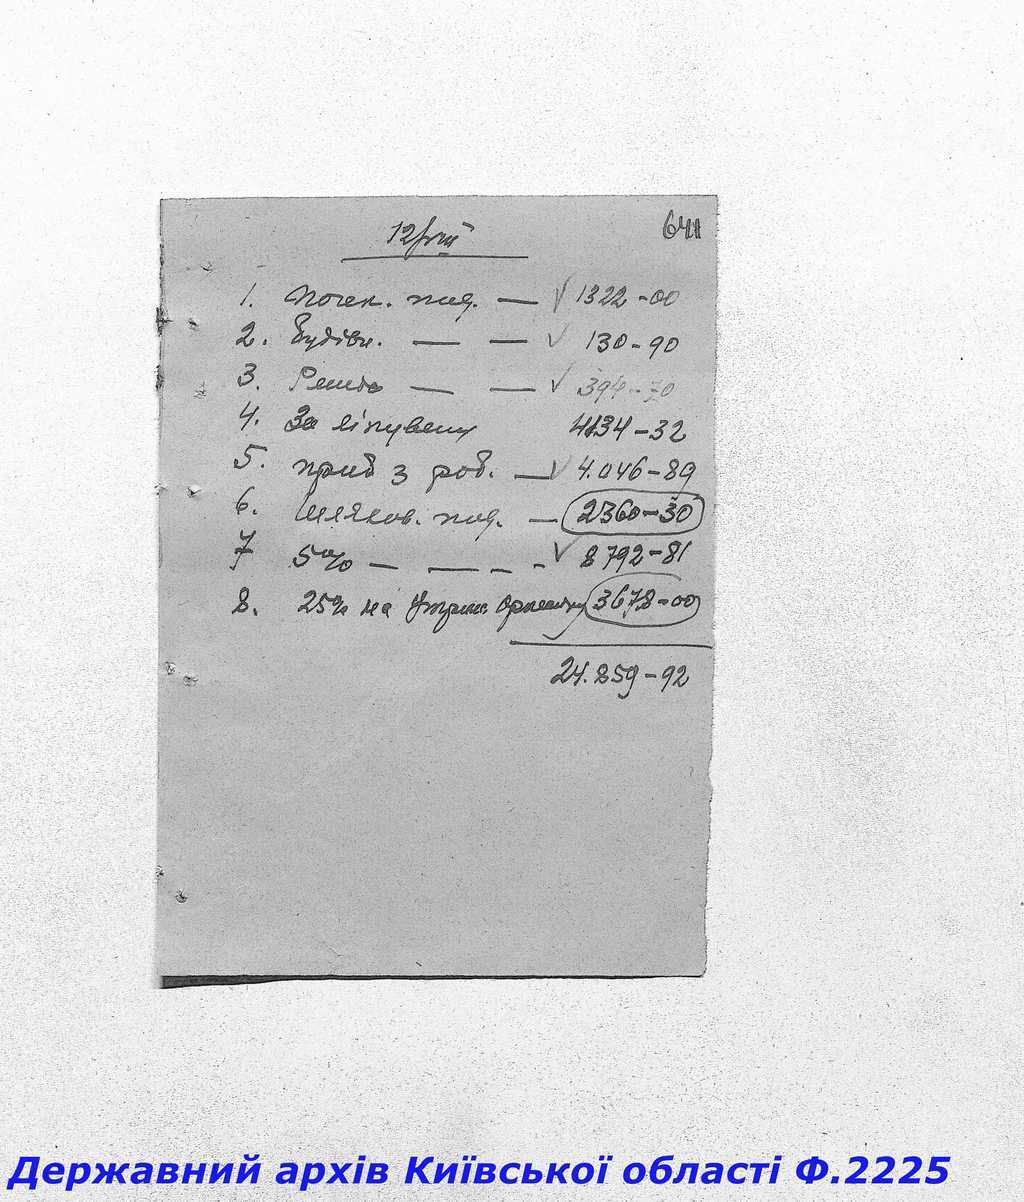 641
12/VIII
1. Почек. под. — ✓ 1322-00
2. Будівн. — — ✓ 130-90
3. — — ✓ 394-70
4. За 4134-32
5. приб з роб. — ✓ 4.046-89
6. Шляхов. под. — 2360-30
7 5% — — — - ✓ 8792-81
8. 25% на 3678-00
24.859-92
Державний архів Київської області Ф.2225